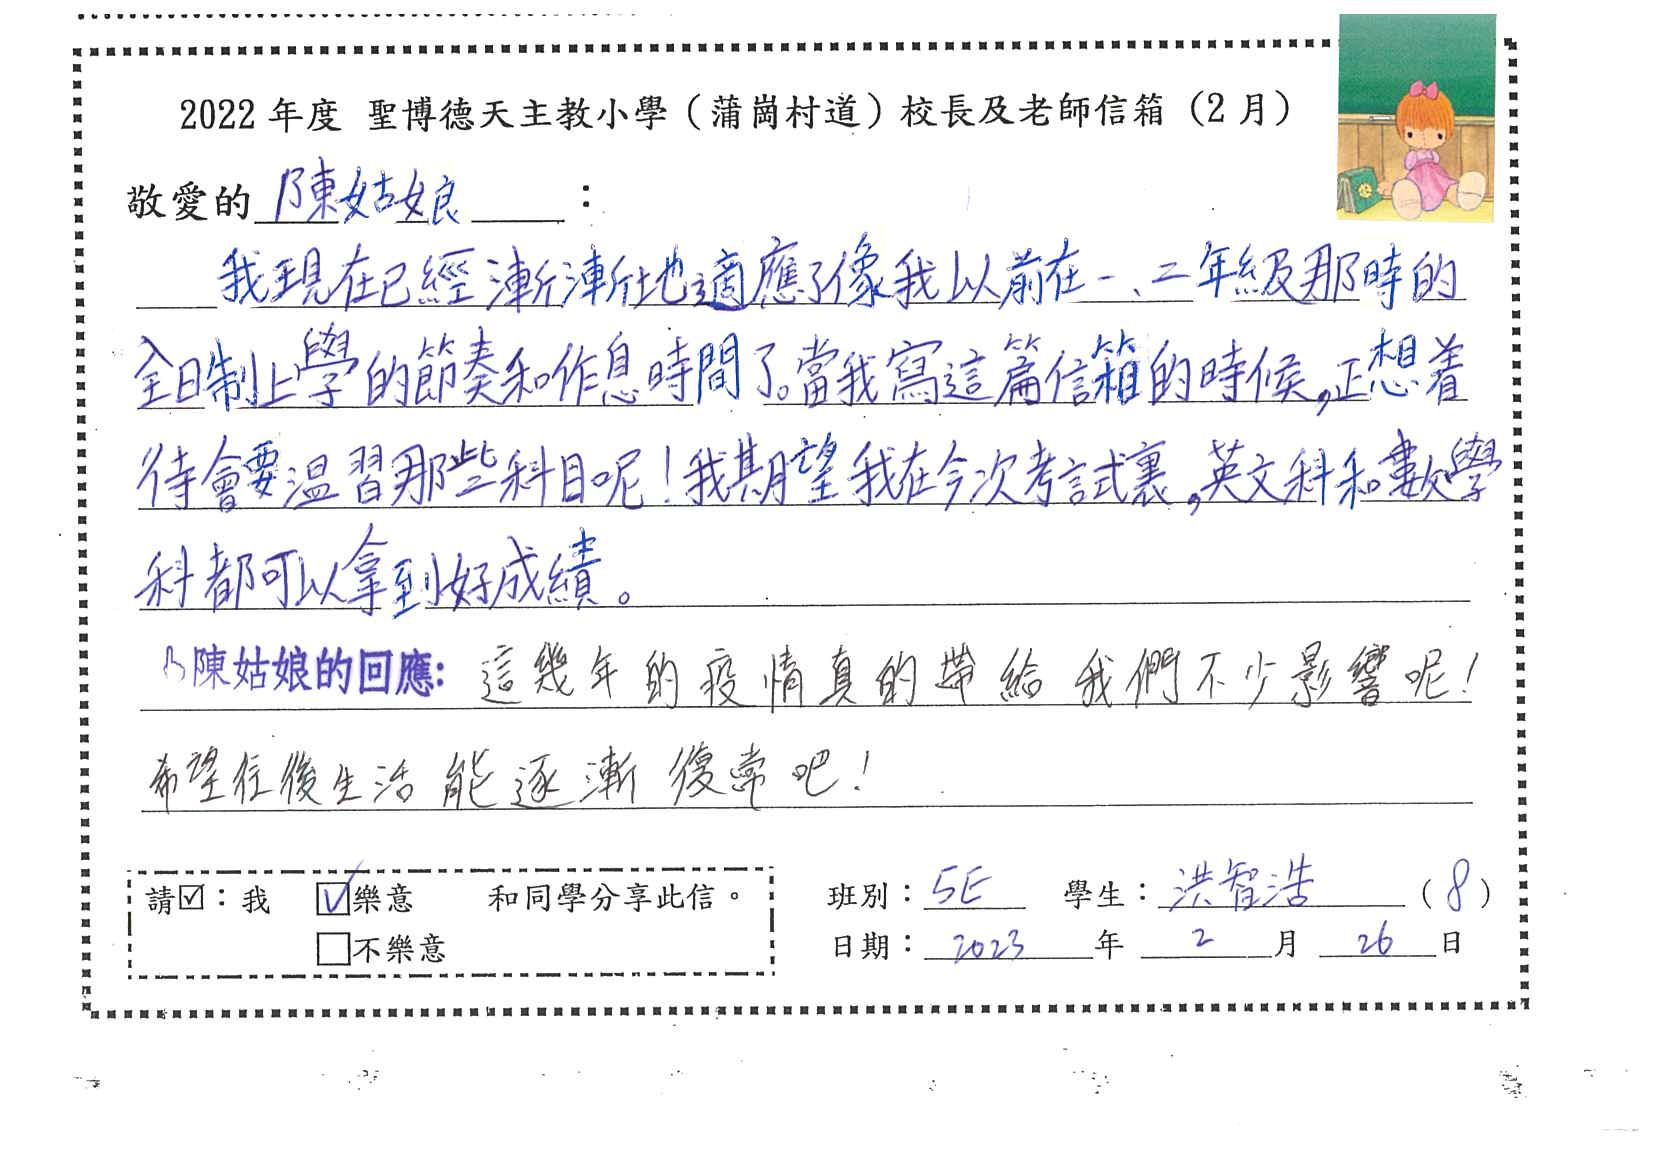 2022 年度 聖博德天主教小學（蒲崗村道）校長及老師信箱（2 月）
敬愛的 陳姑娘 ：
我現在已經漸漸地適應了像我以前在一、二年級那時的
全日制上學的節奏和作息時間了。當我寫這篇信箱的時候，正想着
待會要温習那些科目呢！我期望我在今次考試裏，英文科和數學
科都可以拿到好成績。
陳姑娘的回應：這幾年的疫情真的帶給我們不少影響呢！
希望往後生活能逐漸復常吧！
請☑：我 ☑樂意 和同學分享此信。
□不樂意
班別：5E 學生：洪智浩（8）
日期：2023年 2 月 26 日